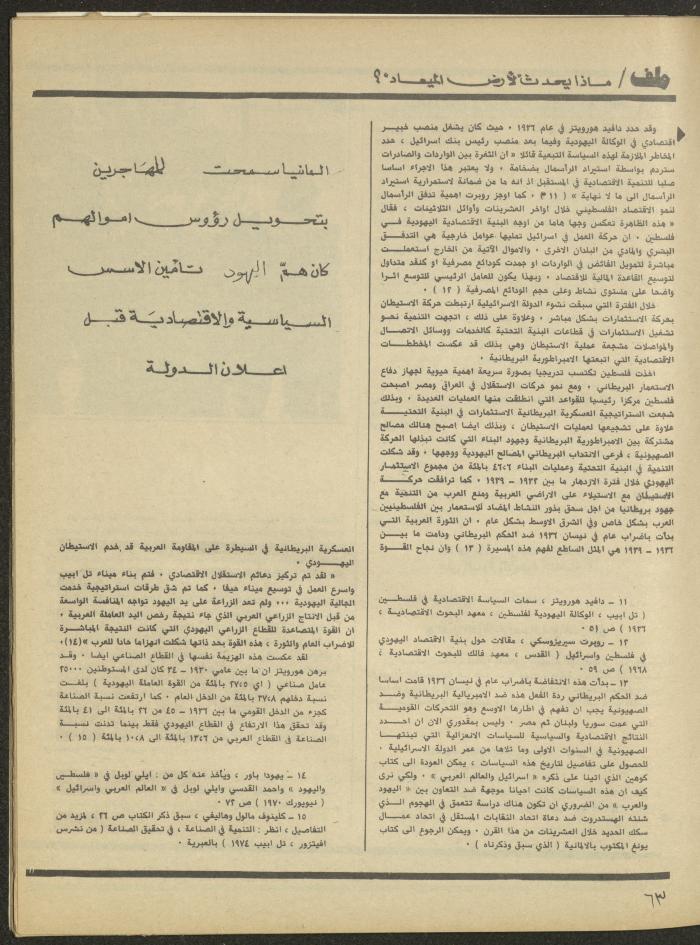 ملف / ماذا يحدث لأرض الميعاد ؟
وقد حدد دافيد هورويتز في عام ١٩٣٦ ، حيث كان يشغل منصب خبير
اقتصادي في الوكالة اليهودية وفيما بعد منصب رئيس بنك اسرائيل ، حدد
المخاطر الملازمة لهذه السياسة التبعية قائلا « ان الثغرة بين الواردات والصادرات
ستردم بواسطة استيراد الرأسمال بضخامة ، ولا يعتبر هذا الاجراء اساسا
صلبا للتنمية الاقتصادية في المستقبل اذ انه ما من ضمانة لاستمرارية استيراد
الرأسمال الى ما لا نهاية » ( ١١ ) ، كما اوجز روبرت اهمية تدفق الرأسمال
لنمو الاقتصاد الفلسطيني خلال اواخر العشرينات وأوائل الثلاثينات ، فقال
« هذه الظاهرة تعكس وجها هاما من اوجه البنية الاقتصادية اليهودية فـي
فلسطين ، ان حركة العمل في اسرائيل تمليها عوامل خارجية هي التدفــق
البشري والمادي من البلدان الاخرى ، والاموال الآتية من الخارج استعملــت
مباشرة لتمويل الفائض في الواردات او جمدت كودائع مصرفية او كنقد متداول
لتوسيع القاعدة المالية للاقتصاد ، وبهذا يكون للعامل الرئيسي للتوسع اثـرا
واضحا على مستوى نشاط وعلى حجم الودائع المصرفية ( ١٢ ) ٠
خلال الفترة التي سبقت نشوء الدولة الاسرائيلية ارتبطت حركة الاستيطان
بحركة الاستثمارات بشكل مباشر ، وعلاوة على ذلك ، اتجهت التنمية نحـو
تشغيل الاستثمارات في قطاعات البنية التحتية كالخدمات ووسائل الاتصــال
والمواصلات مشجعة عملية الاستيطان وهي بذلك قد عكست المخططــات
الاقتصادية التي اتبعتها الامبراطورية البريطانية ٠
اخذت فلسطين تكتسب تدريجيا بصورة سريعة اهمية حيوية لجهاز دفاع
الاستعمار البريطاني ، ومع نمو حركات الاستقلال في العراق ومصر اصبحت
فلسطين مركزا رئيسيا للقواعد التي انطلقت منها العمليات العديدة ، وبذلك
شجعت الستراتيجية العسكرية البريطانية الاستثمارات في البنية التحتيــة
علاوة على تشجيعها لعمليات الاستيطان ، وبذلك ايضا اصبح هنالك مصالح
مشتركة بين الامبراطورية البريطانية وجهود البناء التي كانت تبذلها الحركة
الصهيونية ، فرعى الانتداب البريطاني المصالح اليهودية ووجهها ، وقد شكلت
التنمية في البنية التحتية وعمليات البناء ٤٦،٦ بالمئة من مجموع الاستثمار
اليهودي خلال فترة الازدهار ما بين ١٩٣٢ - ١٩٣٩ ، كما ترافقت حركــة
الاستيطان مع الاستيلاء على الاراضي العربية ومنع العرب من التنمية مع
جهود بريطانيا من اجل سحق بذور النشاط المضاد للاستعمار بين الفلسطينيين
العرب بشكل خاص وفي الشرق الاوسط بشكل عام ، ان الثورة العربية التـي
بدأت باضراب عام في نيسان ١٩٣٦ ضد الحكم البريطاني ودامت ما بيــن
١٩٣٦ - ١٩٣٩ هي المثل الساطع لفهم هذه المسيرة ( ١٣ ) وان نجاح القـوة
١١ - دافيد هورويتز ، سمات السياسة الاقتصادية في فلسطيــن
( تل ابيب ، الوكالة اليهودية لفلسطين ، معهد البحوث الاقتصاديــة ،
١٩٣٦ ) ص ٥١ ٠
١٢ - روبرت سيريزوسكي ، مقالات حول بنية الاقتصاد اليهودي
في فلسطين واسرائيل ( القدس ، معهد فالك للبحوث الاقتصادية ،
١٩٦٨ ) ص ٥٩ ٠
١٣ - بدأت هذه الانتفاضة باضراب عام في نيسان ١٩٣٦ قامت اساسا
ضد الحكم البريطاني ردة الفعل هذه ضد الامبريالية البريطانية وضـد
الصهيونية يجب ان تفهم في اطارها الاوسع وهو التحركات القوميــة
التي عمت سوريا ولبنان ثم مصر ، وليس بمقدوري الان ان احــدد
النتائج الاقتصادية والسياسية للسياسات الانعزالية التي تبنتهـا
الصهيونية في السنوات الاولى وما تلاها من عمر الدولة الاسرائيلية ،
للحصول على تفاصيل لتاريخ هذه السياسات ، يمكن العودة الى كتاب
كوهين الذي اتينا على ذكره « اسرائيل والعالم العربي » ، ولكي نرى
كيف ان هذه السياسات كانت احيانا موجهة ضد التعاون بين « اليهود
والعرب » من الضروري ان تكون هناك دراسة تتعمق في الهجوم الــذي
شنته الهستدروت ضد دعاة اتحاد النقابات المستقل في اتحاد عمــال
سكك الحديد خلال العشرينات من هذا القرن ، ويمكن الرجوع الى كتاب
يونغ المكتوب بالالمانية ( الذي سبق وذكرناه ) ٠
المانيا سمحت للمهاجرين
بتحويل رؤوس اموالهم
كان همّ اليهود تأمين الاسس
السياسية والاقتصادية قبل
اعلان الدولة
العسكرية البريطانية في السيطرة على المقاومة العربية قد خدم الاستيطان
اليهــودي ٠
« لقد تم تركيز دعائم الاستقلال الاقتصادي ، فتم بناء ميناء تل ابيب
واسرع العمل في توسيع ميناء حيفا ، كما تم شق طرقات استراتيجية خدمت
الجالية اليهودية ٠٠٠ ولم تعد الزراعة على يد اليهود تواجه المنافسة الواسعة
من قبل الانتاج الزراعي العربي الذي جاء نتيجة رخص اليد العاملة العربية ،
ان القوة المتصاعدة للقطاع الزراعي اليهودي التي كانت النتيجة المباشــرة
للاضراب العام والثورة ، هذه القوة بحد ذاتها شكلت انهزاما حادا للعرب »(١٤)٠
لقد عكست هذه الهزيمة نفسها في القطاع الصناعي ايضا ، وقـد
برهن هورويتز ان ما بين عامي ١٩٣٠ - ٣٤ كان لدى المستوطنين ٢٥٠٠٠
عامل صناعي ( اي ٢٧،٥ بالمئة من القوة العاملة اليهودية ) بلغــت
نسبة دخلهم ٢٧،٨ بالمئة من الدخل العام ، كما ارتفعت نسبة الصناعة
كجزء من الدخل القومي ما بين ١٩٣٦ - ٤٥ من ٢٦ بالمئة الى ٤١ بالمئة
وقد تحقق هذا الارتفاع في القطاع اليهودي فقط بينما تدنت نسبــة
الصناعة في القطاع العربي من ١٣،٦ بالمئة الى ١٠،٨ بالمئة ( ١٥ ) ٠
١٤ - يهودا باور ، ويأخذ عنه كل من : ايلي لوبل في « فلسطين
واليهود » واحمد القدسي وايلي لوبل في « العالم العربي واسرائيل »
( نيويورك ١٩٧٠ ) ص ٧٢ ٠
١٥ - كلينوف مالول وهاليفي ، سبق ذكر الكتاب ص ٢٦ ، لمزيد من
التفاصيل ، انظر : التنمية في الصناعة ، في تحقيق الصناعة ( من نشرس
افيتزور ، تل ابيب ١٩٧٤ ) بالعبرية ٠
٦٣